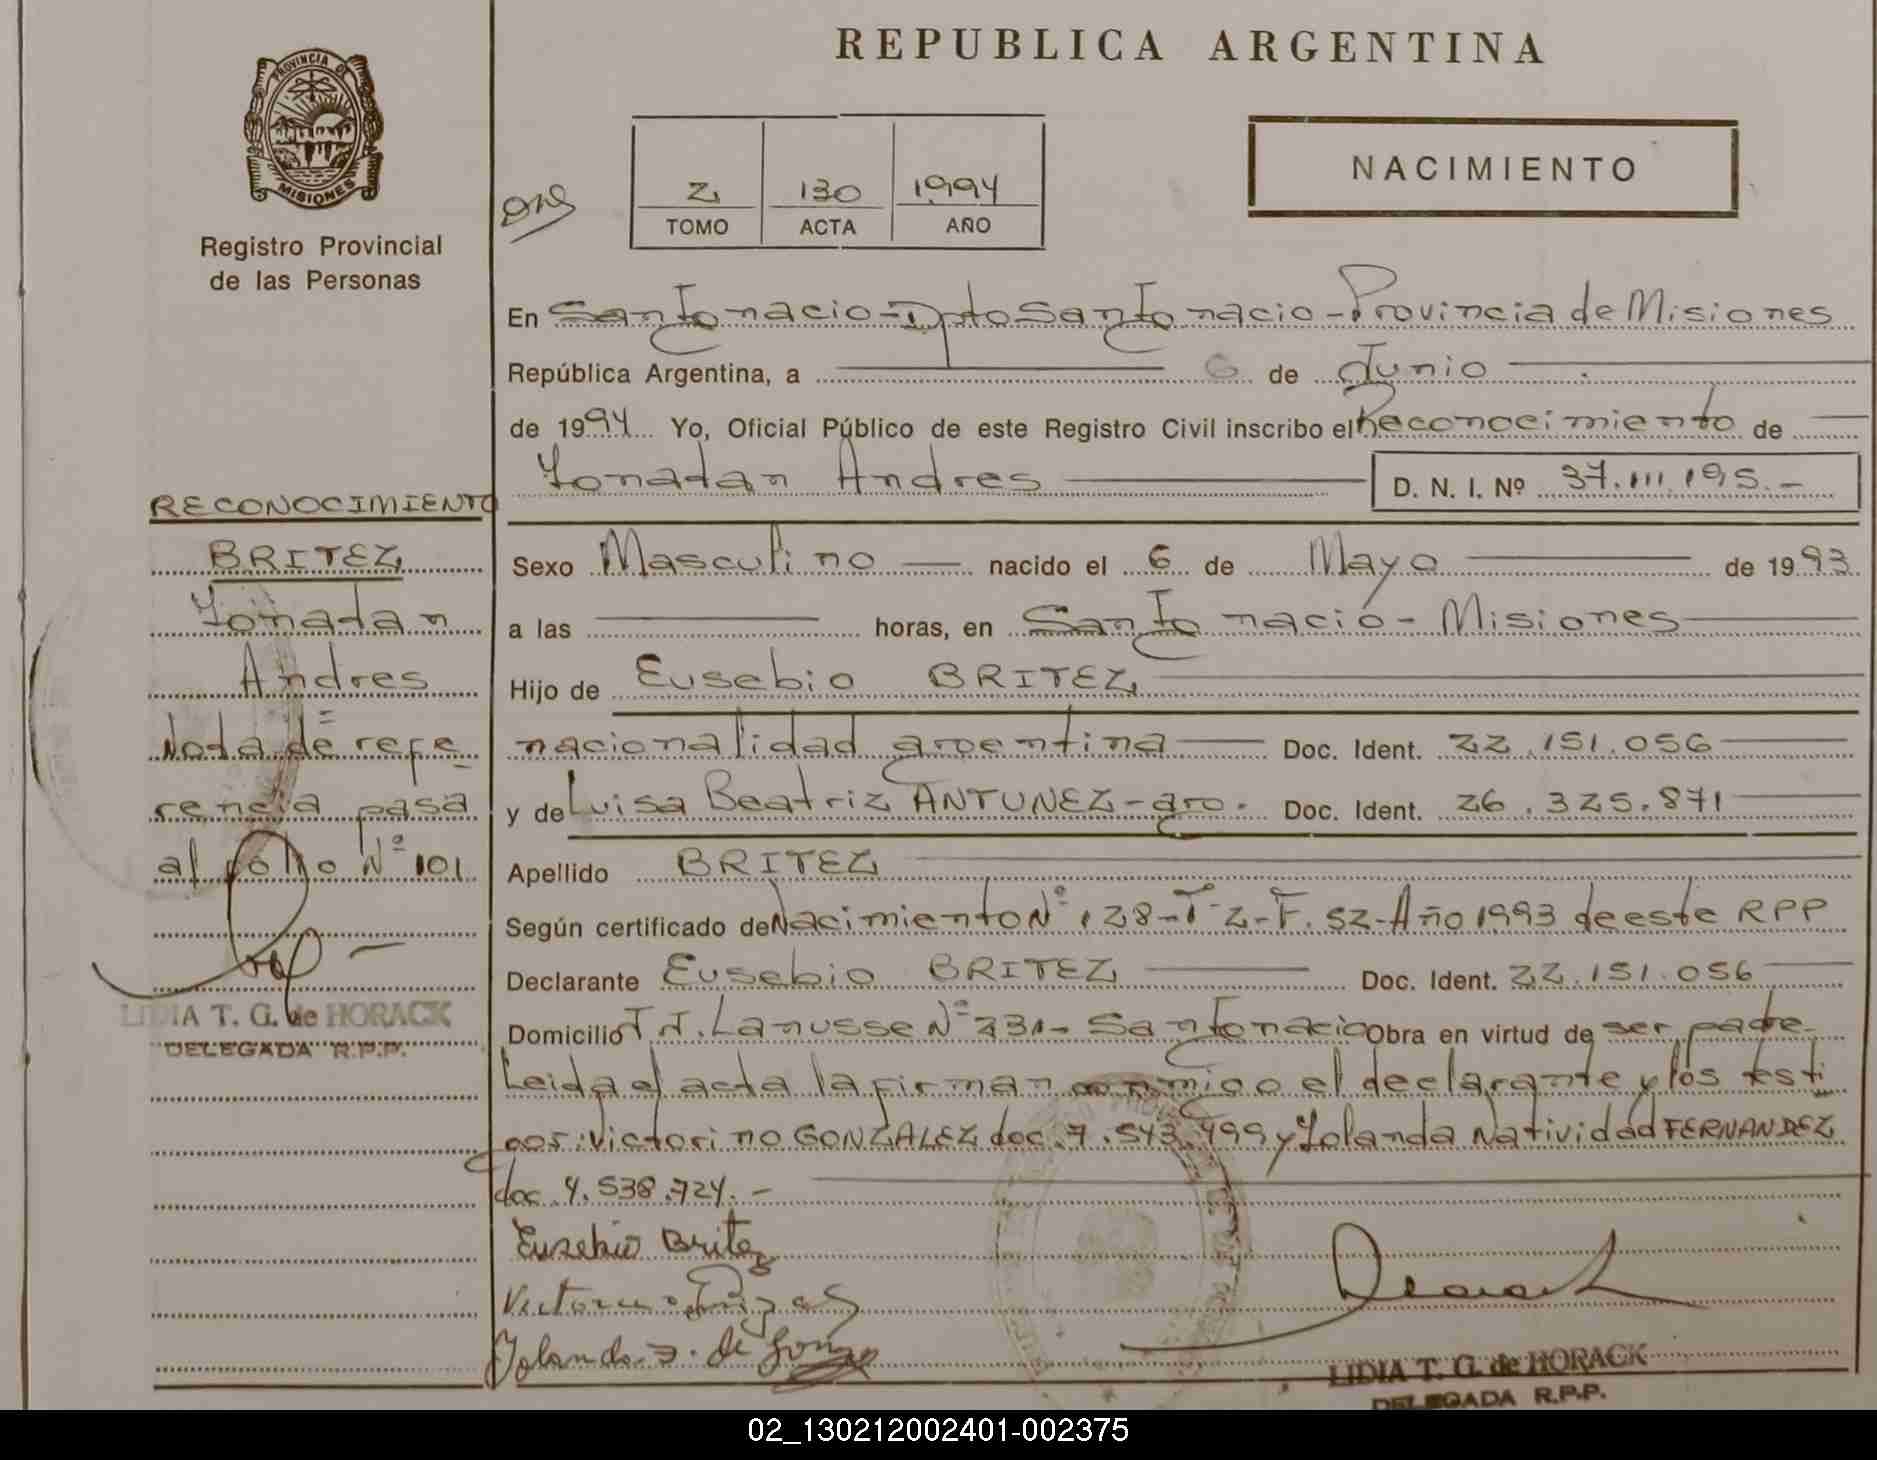 REPUBLICA ARGENTINA
PROVINCIA DE
MISIONES
Registro Provincial
de las Personas
2 130 1994
TOMO ACTA AÑO
NACIMIENTO
En San Ignacio - Dpto San Ignacio - Provincia de Misiones
República Argentina, a 6 de Junio
de 1994 Yo, Oficial Público de este Registro Civil inscribo el Reconocimiento de
Yonadan Andres D. N. I. Nº 37.111.195.-
Sexo Masculino nacido el 6 de Mayo de 1993
a las horas, en San Ignacio - Misiones
Hijo de Eusebio BRITEZ
nacionalidad argentina Doc. Ident. 22.151.056
y de Luisa Beatriz ANTUNEZ - arg. Doc. Ident. 26.325.871
Apellido BRITEZ
Según certificado de Nacimiento Nº 128-T-2-F. 52-Año 1993 de este RPP
Declarante Eusebio BRITEZ Doc. Ident. 22.151.056
Domicilio Lanusse Nº 231- San Ignacio Obra en virtud de ser padre
Leida el acta la firman conmigo el declarante y los testi
gos: Victorino GONZALEZ doc. 7.543.499 y Yolanda Natividad FERNANDEZ
doc. 4.538.724.-
Eusebio Britez
Yolanda F. de
LIDIA T. G. de HORACK
DELEGADA R.P.P.
RECONOCIMIENTO
BRITEZ
Yonadan
Andres
Nota de refe
rencia pasa
al folio Nº 101
LIDIA T. G. de HORACK
DELEGADA R.P.P.
02_130212002401-002375